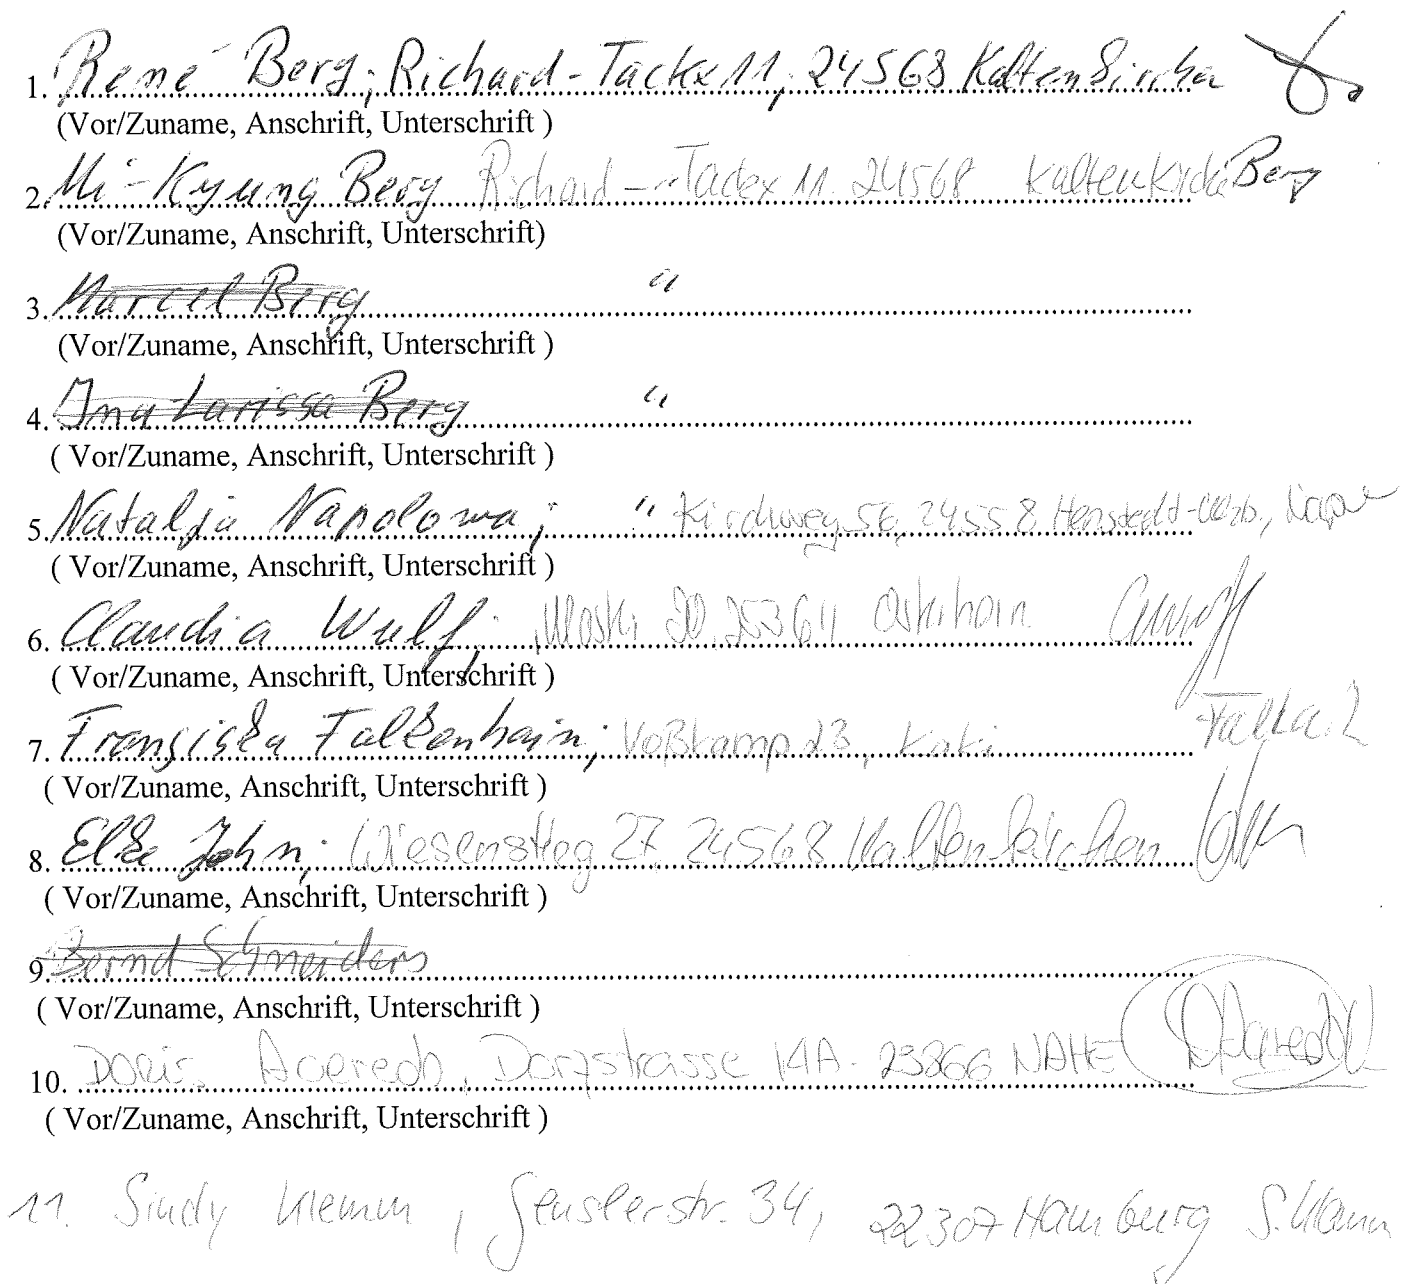 1. René Berg; Richard-Tackx 11, 24568 Kaltenkirchen
(Vor/Zuname, Anschrift, Unterschrift )
2. Mi-Kyung Berg Richard-Tackx 11. 24568 Kaltenkirche Berg
(Vor/Zuname, Anschrift, Unterschrift)
3. Marcel Berg "
(Vor/Zuname, Anschrift, Unterschrift )
4. Ina-Larissa Berg "
( Vor/Zuname, Anschrift, Unterschrift )
5. Natalja Napolowa; " Kirchweg 56, 24558 Henstedt-Ulzb.,
( Vor/Zuname, Anschrift, Unterschrift )
6. Claudia Wulf; 20, 25364
( Vor/Zuname, Anschrift, Unterschrift )
7. Franziska Falkenhain; Voßkamp 23, Kaki
( Vor/Zuname, Anschrift, Unterschrift )
8. Elke John; Wiesenstieg 27, 24568 Kaltenkirchen
( Vor/Zuname, Anschrift, Unterschrift )
9. Bernd Schneiders
( Vor/Zuname, Anschrift, Unterschrift )
10. DORIS. Acevedo, Dorfstrasse 14A. 23866 NAHE
( Vor/Zuname, Anschrift, Unterschrift )
11. Sindy Klemm, Genslerstr. 34, 22307 Hamburg S. Klemm